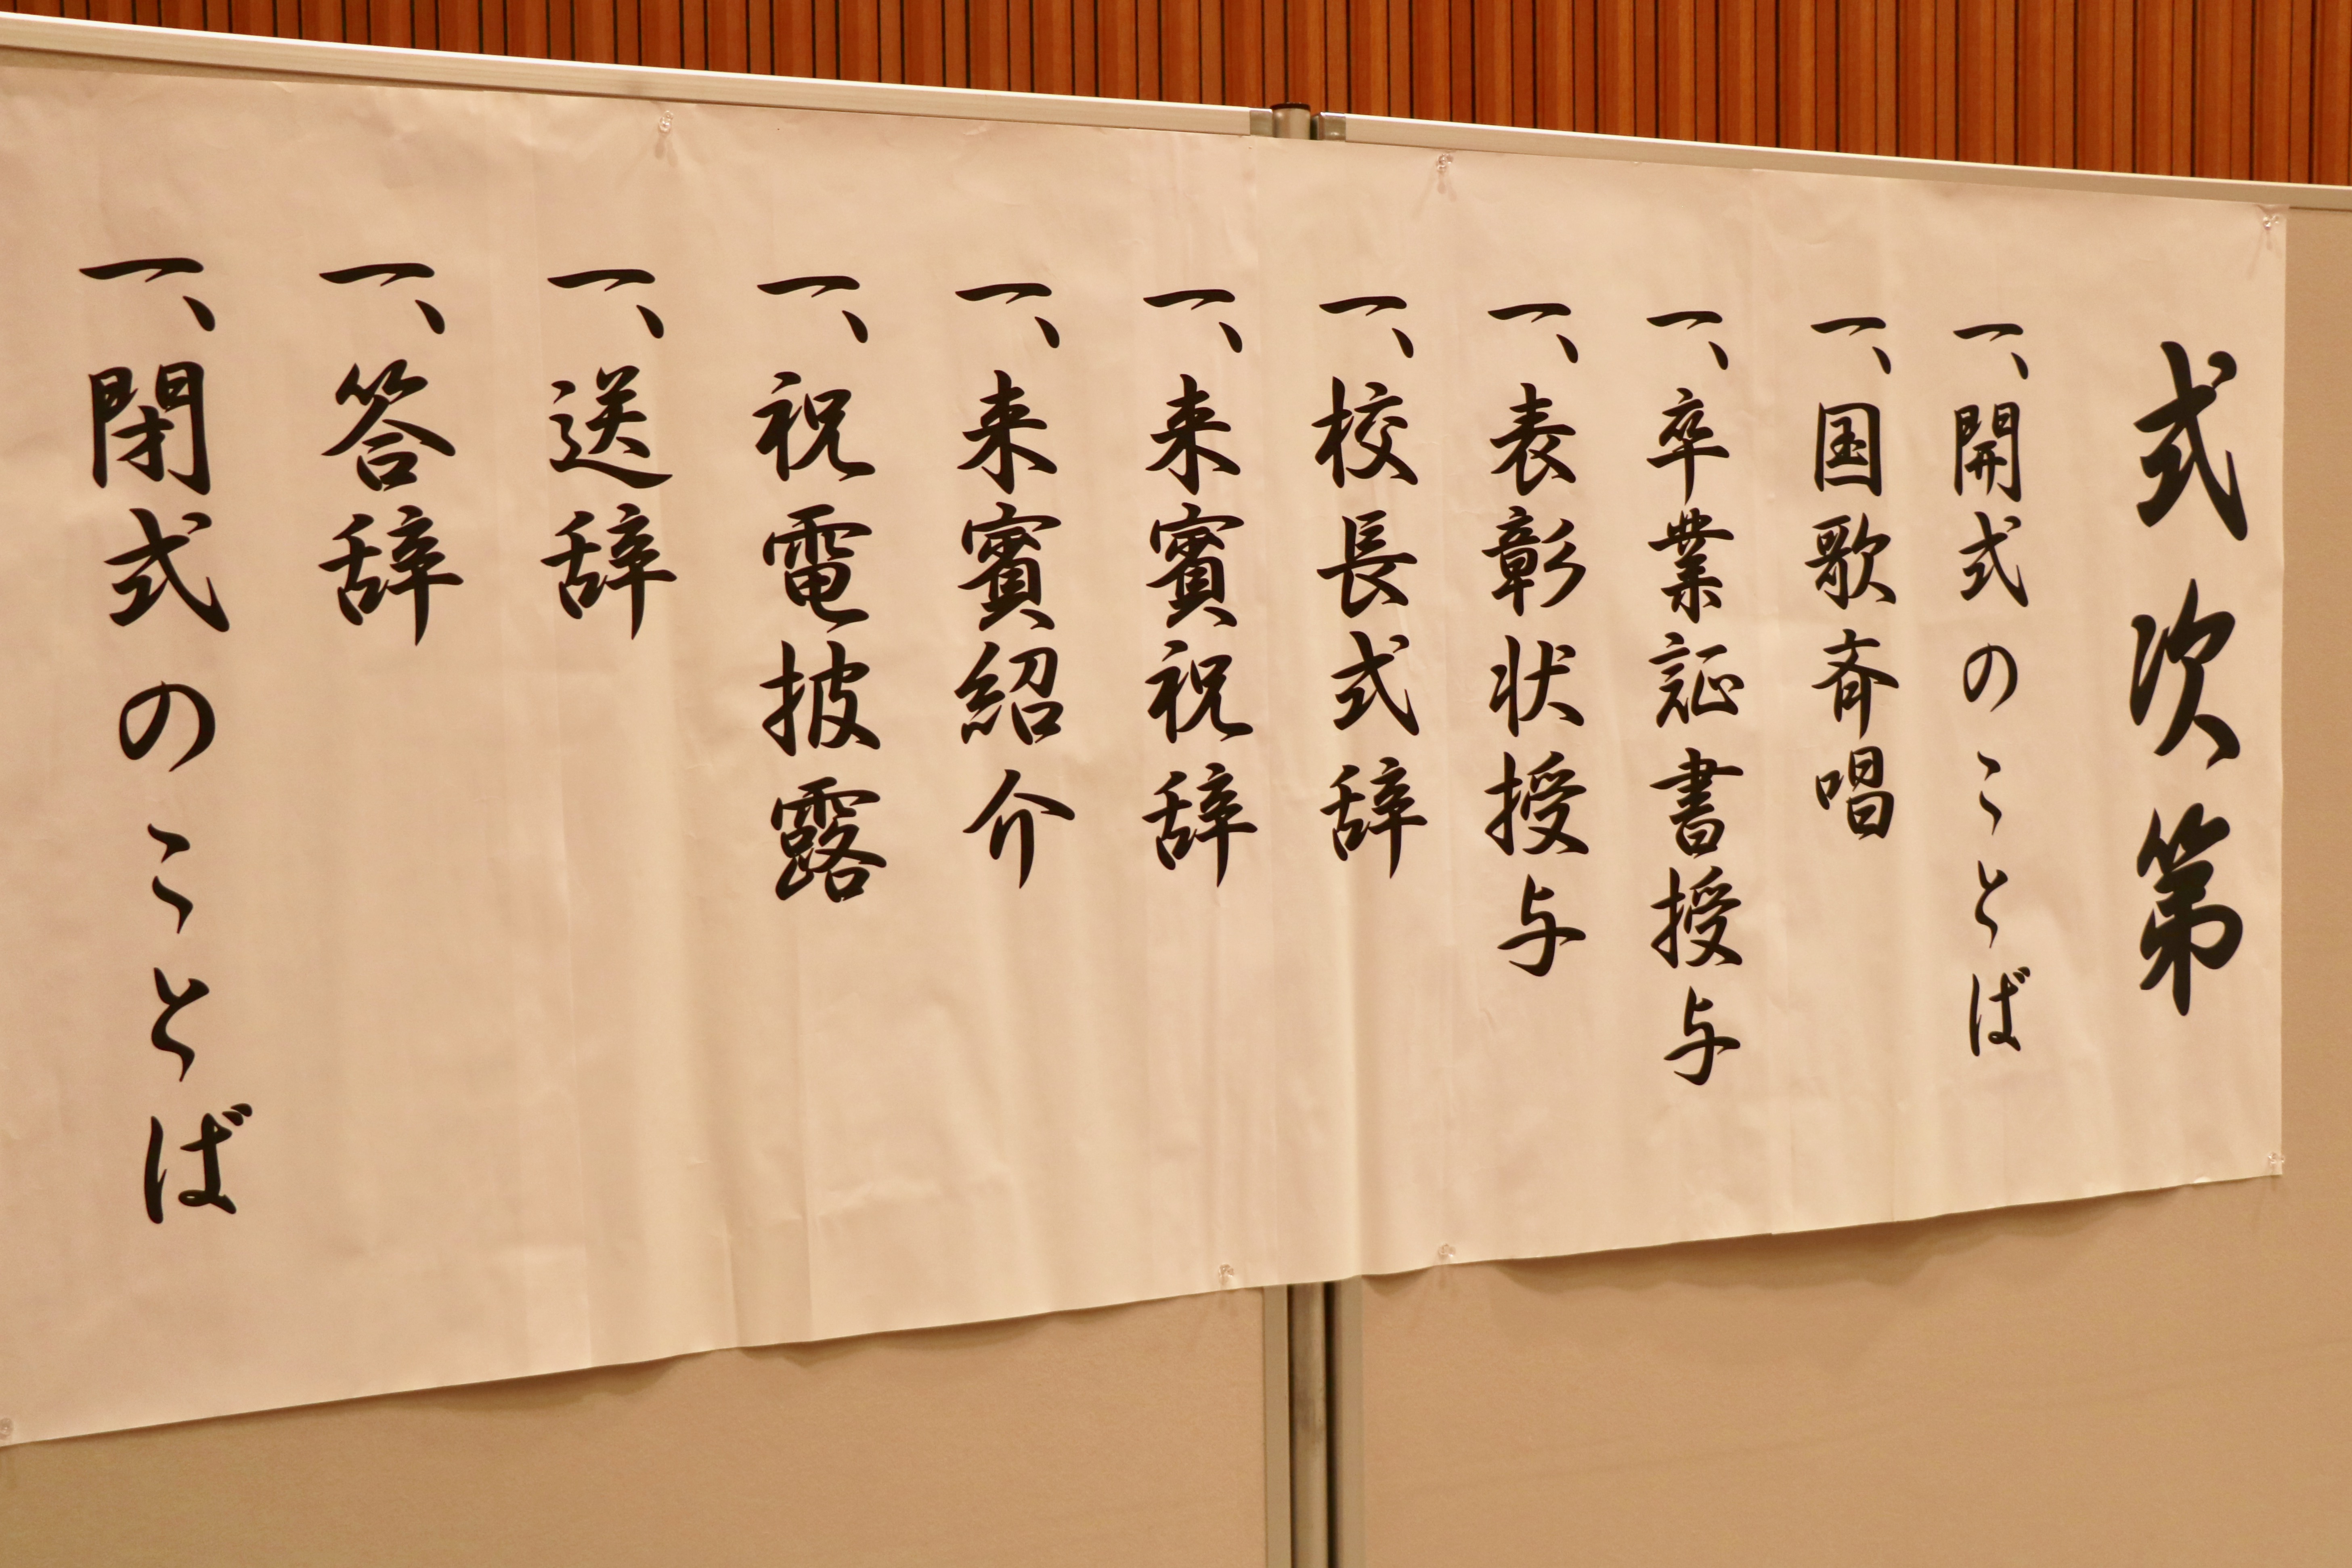 式次第
一、開式のことば
一、国歌斉唱
一、卒業証書授与
一、表彰状授与
一、校長式辞
一、来賓祝辞
一、来賓紹介
一、祝電披露
一、送辞
一、答辞
一、閉式のことば